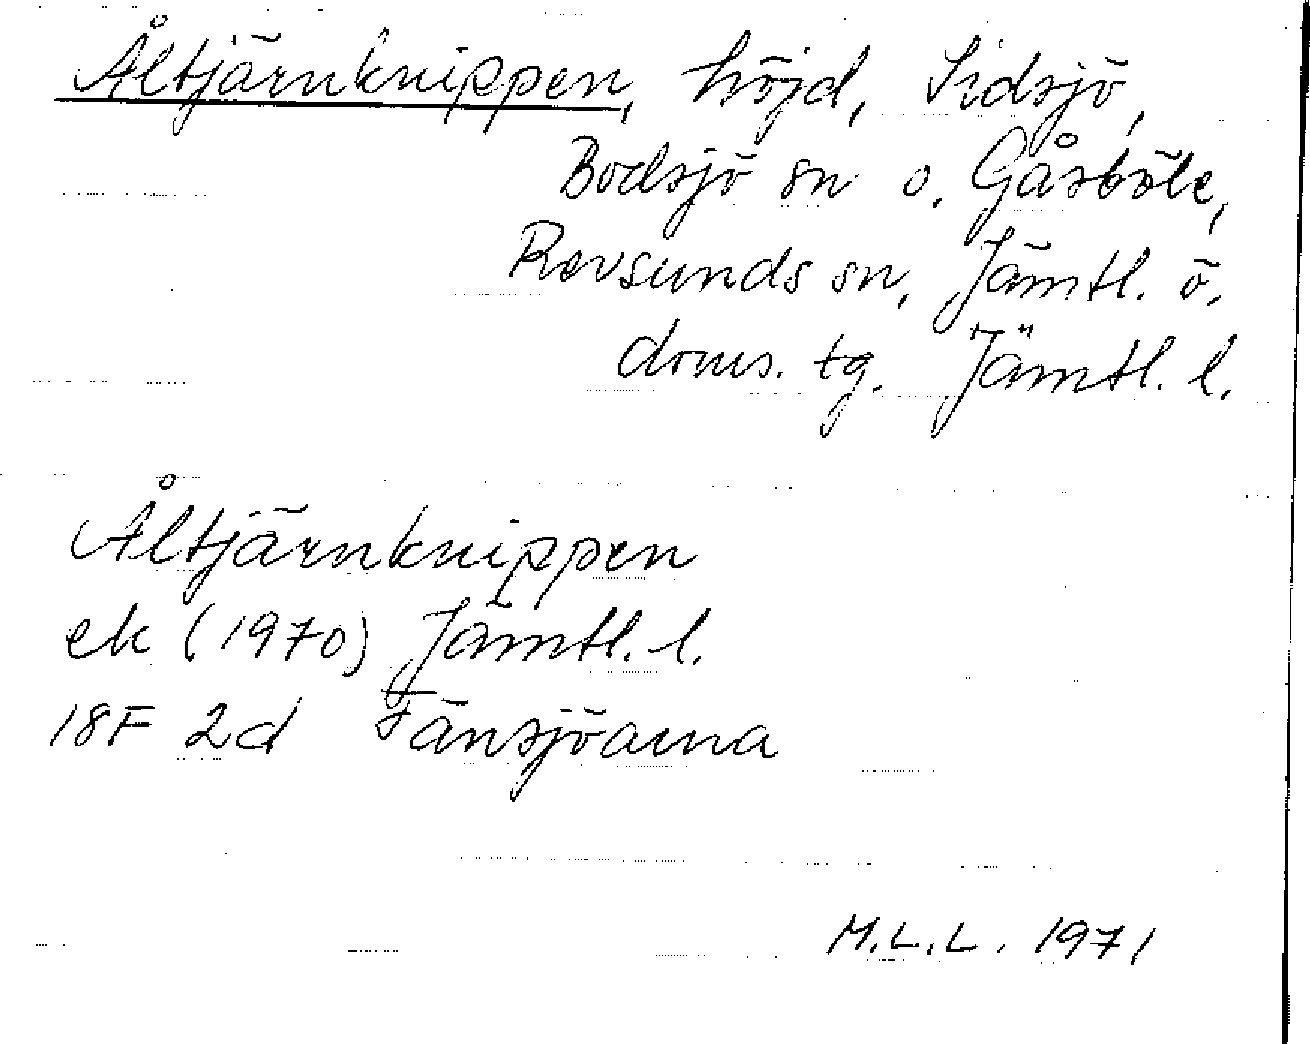 Åltjärnknippen, höjd, Sidsjö,
Bodsjö sn o. Gåsböle,
Revsunds sn, Jämtl. ö.
doms. tg. Jämtl. l.
Åltjärnknippen
ek (1970) Jämtl. l.
18F 2d Fänsjöarna
M.L.L. 1971